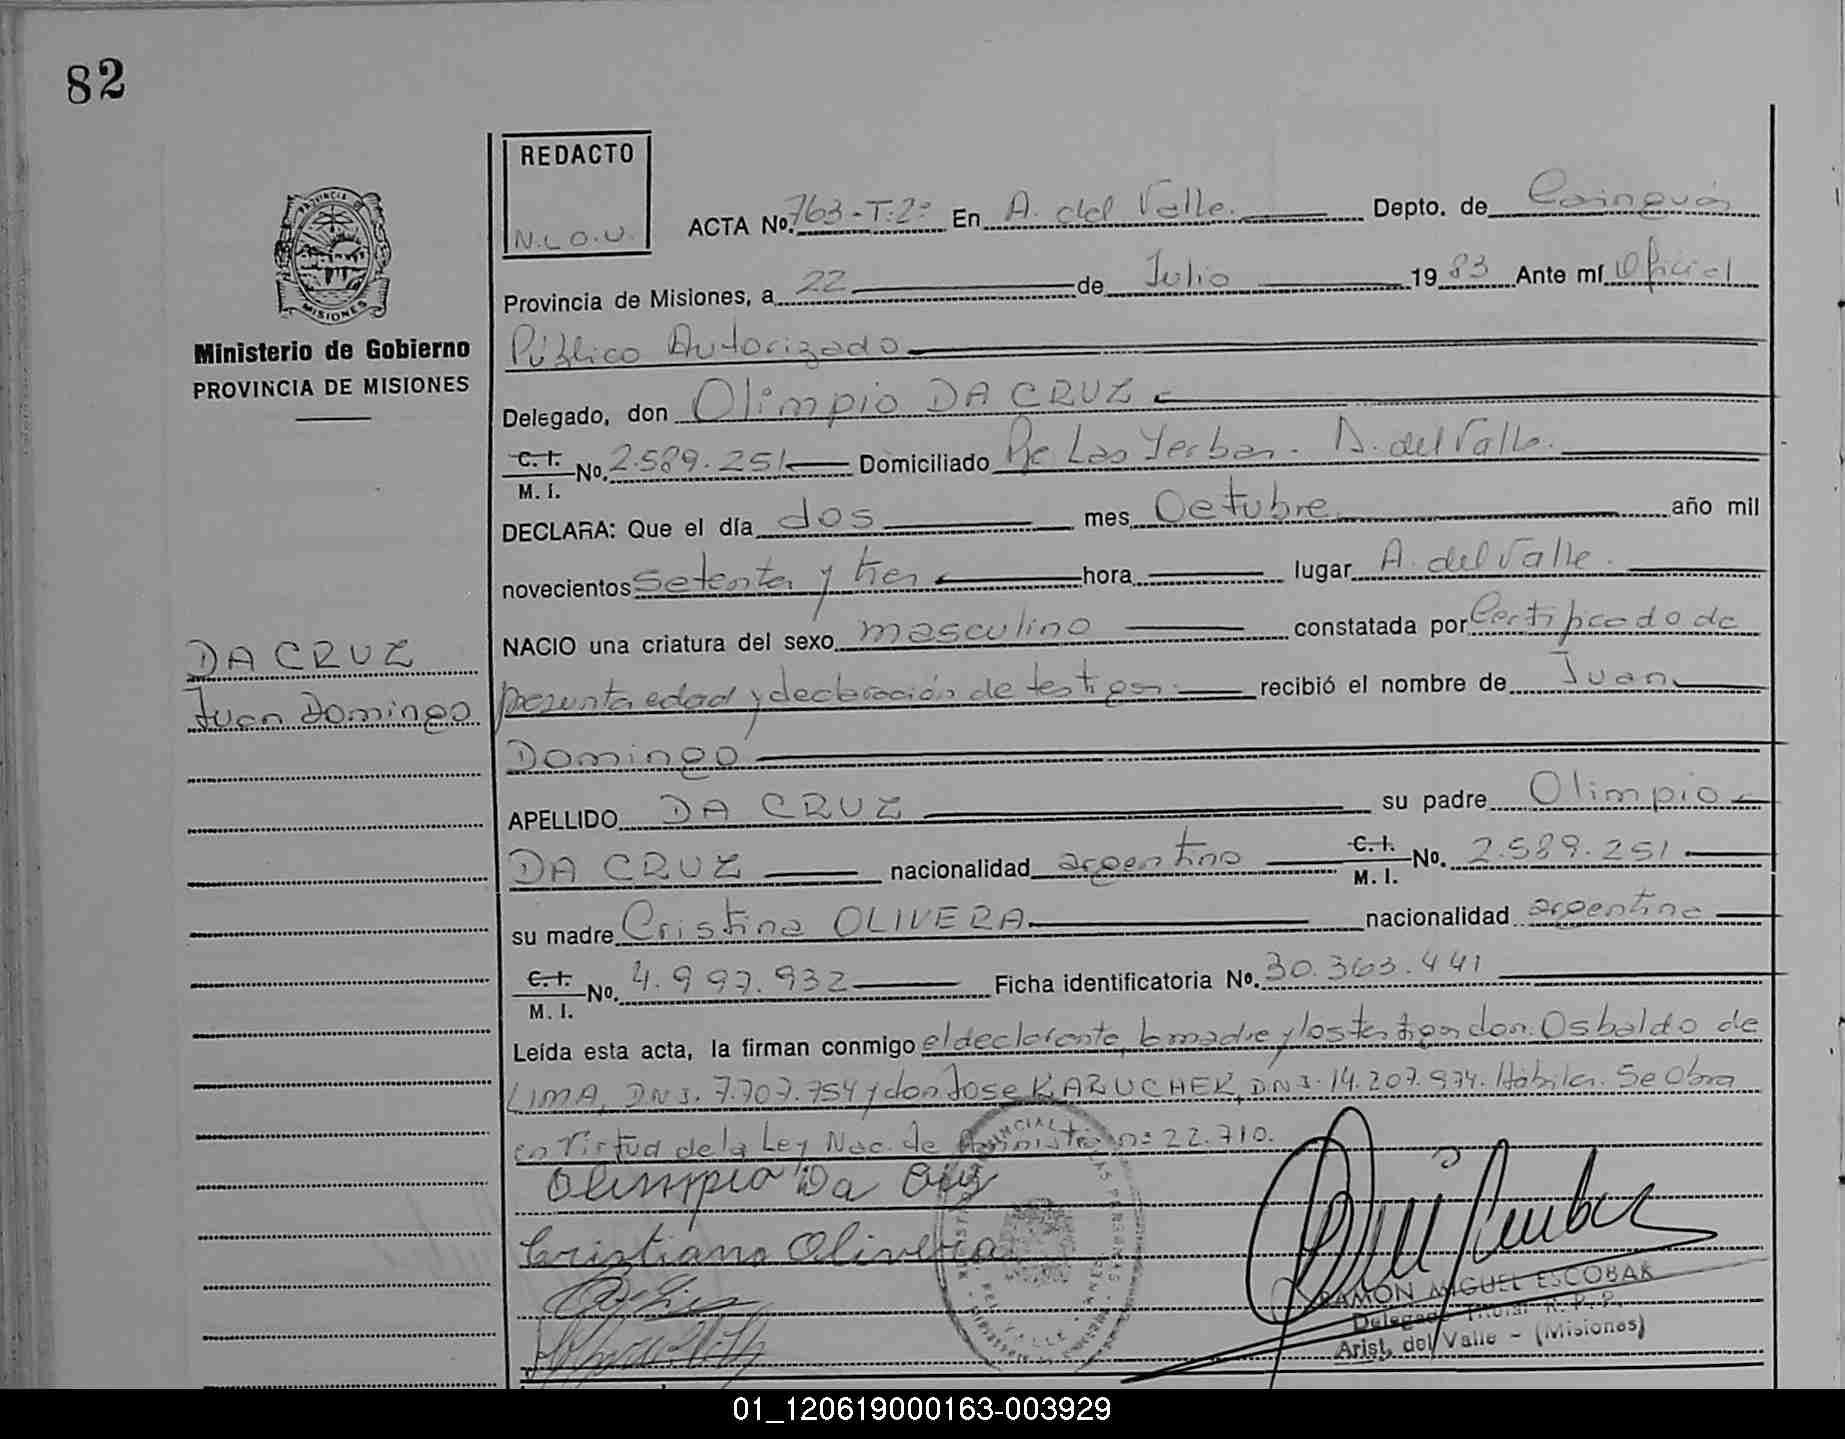 82
REDACTO
N.L.O.U.
ACTA No. 763-T:2º En A. del Valle. Depto. de Cainguás
Provincia de Misiones, a 22 de Julio 1983 Ante mí Oficial
Público Autorizado
MISIONES
Ministerio de Gobierno
PROVINCIA DE MISIONES
Delegado, don Olimpio DA CRUZ
C. I. M. I. No. 2.589.251 Domiciliado Pje Las Yerbas - A. del Valle.
DECLARA: Que el día dos mes Octubre año mil
novecientos Setenta y tres hora lugar A. del Valle.
NACIO una criatura del sexo masculino constatada por Certificado de
DA CRUZ
Juan Domingo
presunta edad y declaración de testigos. recibió el nombre de Juan
Domingo
APELLIDO DA CRUZ su padre Olimpio
DA CRUZ nacionalidad argentino C. I. M. I. No. 2.589.251
su madre Cristina OLIVERA nacionalidad argentina
C. I. M. I. No. 4.997.932 Ficha identificatoria No. 30.363.441
Leída esta acta, la firman conmigo el declarante, la madre y los testigos don: Osbaldo de
LIMA, DNI. 7.707.754 y don Jose KARUCHEK, DNI. 14.207.974. Hábiles. Se Obra
en Virtud de la Ley Nac. de Amnistía nº 22.710.
Olimpio Da Cruz
Cristiana Olivera
RAMON MIGUEL ESCOBAR
Delegado Titular R. P. P.
Arist. del Valle - (Misiones)
01_120619000163-003929